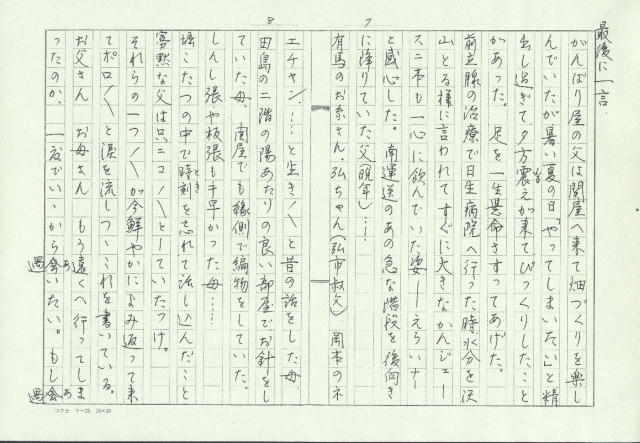 最後に一言.
がんばり屋の父は関屋へ来て畑づくりを楽し
んでいたが暑い夏の日「やってしまいたい」と精
出し過ぎて夕方震えが来てびっくりしたこと
があった。足を一生懸命さすってあげた。
前立腺の治療で日生病院へ行った時水分を沢
山とる様に言われてすぐに大きなかんジュー
ス二本も一心に飲んでいた姿――えらいナー
と感心した。南運送のあの急な階段を後向き
に降りていた父(晩年)……
7
8
有馬のお糸さん、弘ちゃん(弘市叔父) 岡本のネ
エチャン、……と生き〱と昔の話をした母、
田島の二階の陽あたりの良い部屋でお針をし
ていた母、関屋でも縁側で編物をしていた。
しんし張や板張も手早かった母……
堀こたつの中で時刻を忘れて話し込んだこと
とき
寡黙な父は只ニコ〱としていたっけ。
それらの一つ〱が今鮮やかによみ返って来
てポロ〱と涙を流しつゝこれを書いている。
お父さん お母さん もう遠くへ行ってしま
ったのか、一度でいゝから会いたい。もし会
あ
遇
あ
遇
コクヨ ケー20 20×20